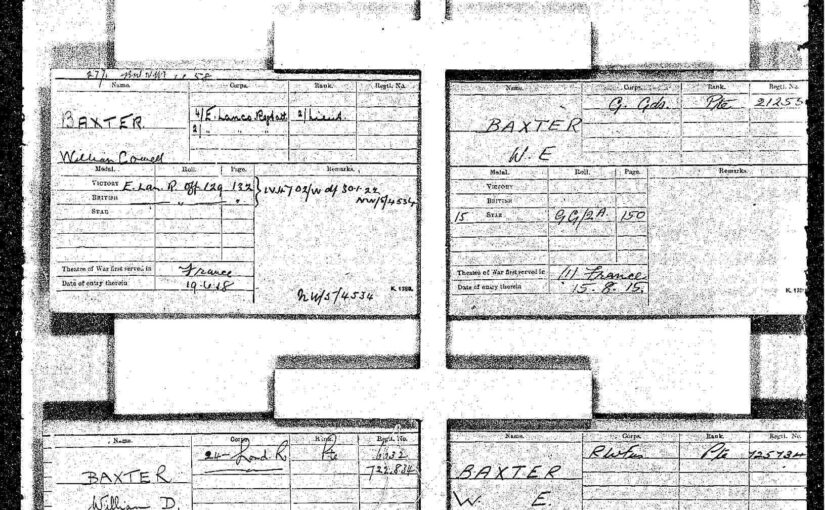 Name. Corps. Rank. Regtl. No.
BAXTER. 4/E. Lancs. Regt att 2/Lieut
2/ "
William Cowell
Medal. Roll. Page. Remarks.
VICTORY E. Lan. R. Off 129 132
BRITISH " " "
STAR
NW/5/4534
Theatre of War first served in France
Date of entry therein 19.6.18
NW/5/4534 K. 1380.
Name. Corps. Rank. Regtl. No.
G. Gds. Pte
BAXTER
W. E
Medal. Roll. Page. Remarks.
VICTORY
BRITISH
15 STAR GG/2A. 150
Theatre of War first served in (1) France
Date of entry therein 15.8.15.
Name. Corps. Rank. Regtl. No.
24 Lond R. Pte 6932
722834
BAXTER
William D.
Name. Corps. Rank. Regtl. No.
R W Fus Pte
BAXTER
W. E.